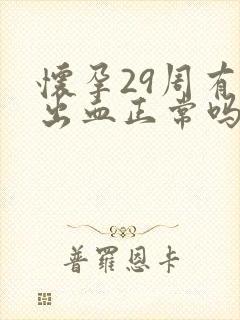 怀孕29周有
出血正常吗
普罗恩卡